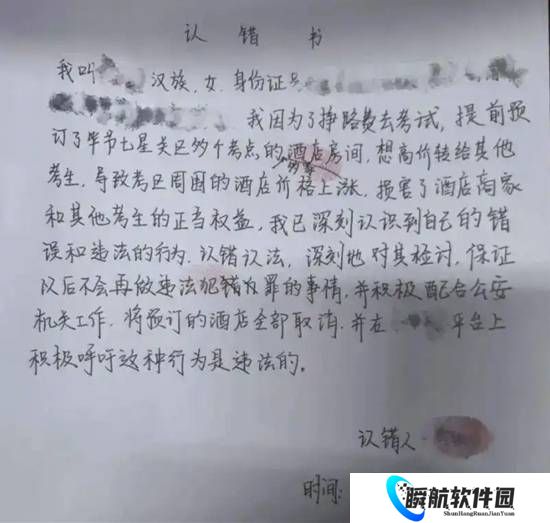 认错书
我叫 汉族，女，身份证号
我因为了挣路费去考试，提前预
订了毕节七星关区多个考点的酒店房间，想高价转给其他
考生，导致考区周围的酒店价格上涨，损害了酒店商家
和其他考生的正当权益，我已深刻认识到自己的错
误和违法的行为。认错认法，深刻地对其检讨，保证
以后不会再做违法犯罪的事情，并积极配合公安
机关工作，将预订的酒店全部取消，并在 平台上
积极呼吁这种行为是违法的。
认错人
时间：
瞬航软件园
ShunHangRuanJianYuan.Com